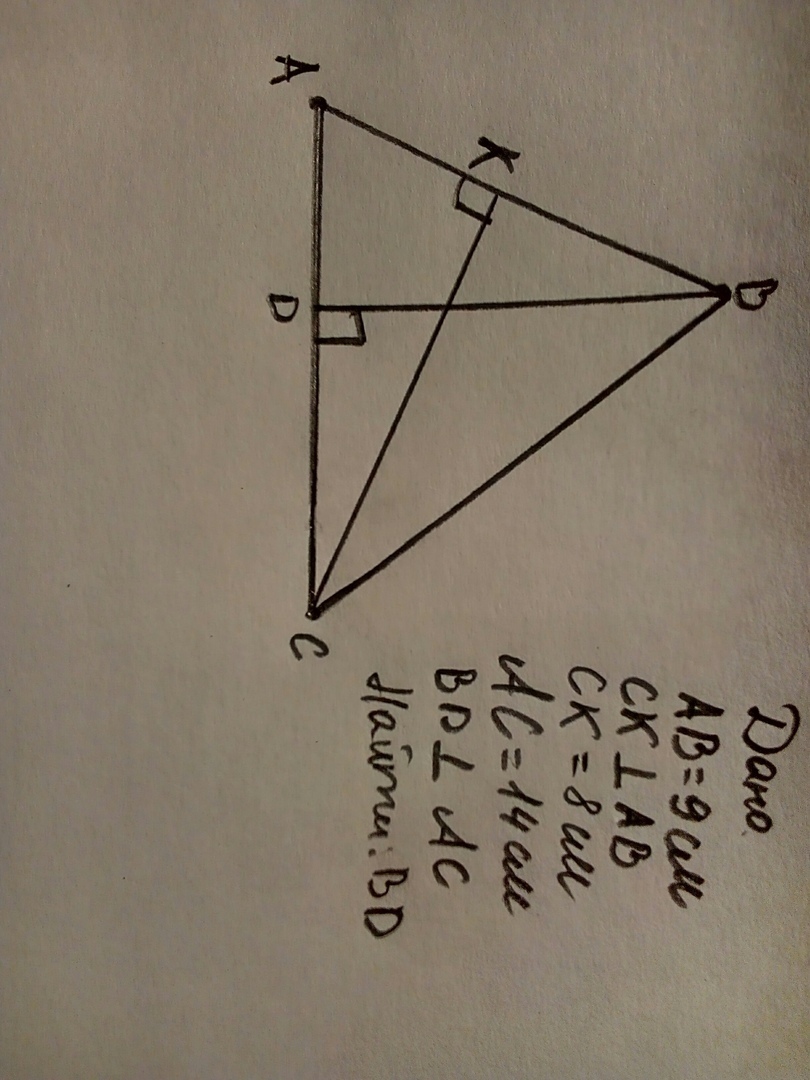 A
K
B
D
C
Дано
AB = 9 см
CK ⊥ AB
CK = 8 см
AC = 14 см
BD ⊥ AC
Найти: BD